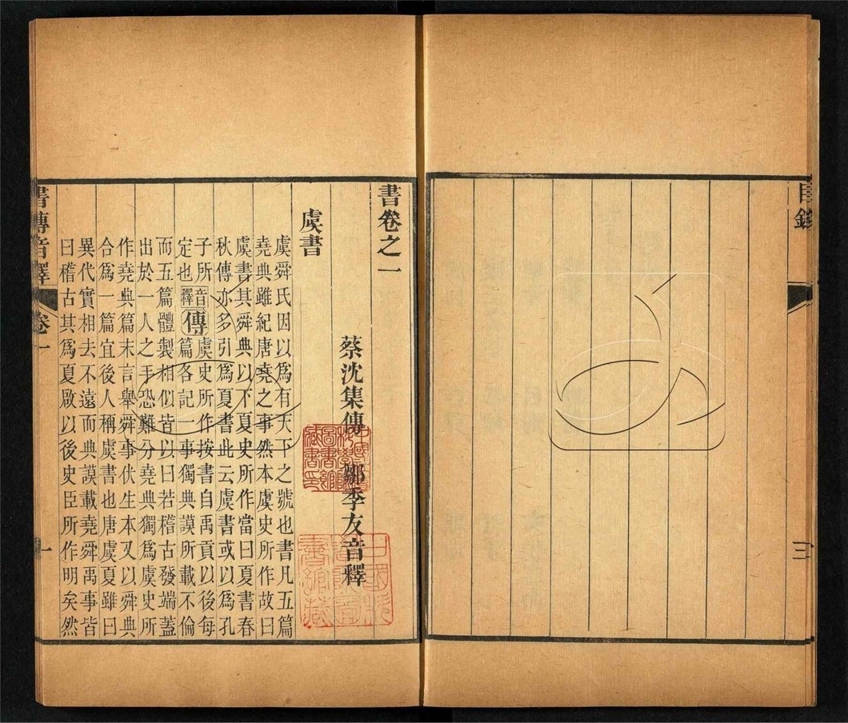 目錄
三
書卷之一
蔡沈集傳 鄒季友音釋
虞書
虞舜氏因以爲有天下之號也書凡五篇
堯典雖紀唐堯之事然本虞史所作故曰
虞書其舜典以下夏史所作當曰夏書春
秋傳亦多引爲夏書此云虞書或以爲孔
子所
定也
音釋
傳
虞史所作按書自禹貢以後每
篇各記一事獨典謨所載不倫
而五篇體製相似皆以曰若稽古發端蓋
出於一人之手恐難分堯典獨爲虞史所
作堯典篇末言舉舜事伏生本又以舜典
合爲一篇宜後人稱虞書也唐虞夏雖曰
異代實相去不遠而典謨載堯舜禹事皆
曰稽古其爲夏歟以後史臣所作明矣然
書傳音釋
卷一
一